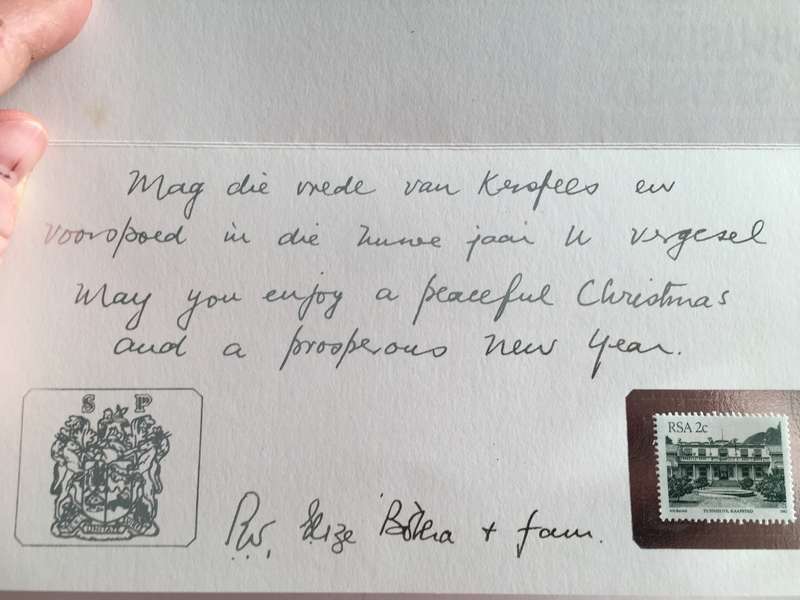 Mag die vrede van Kersfees en
voorspoed in die nuwe jaar U vergesel
May you enjoy a peaceful Christmas
and a prosperous New Year.
S P
RSA 2c
TUINHUYS, KAAPSTAD
P.W. Elize Botha + fam.